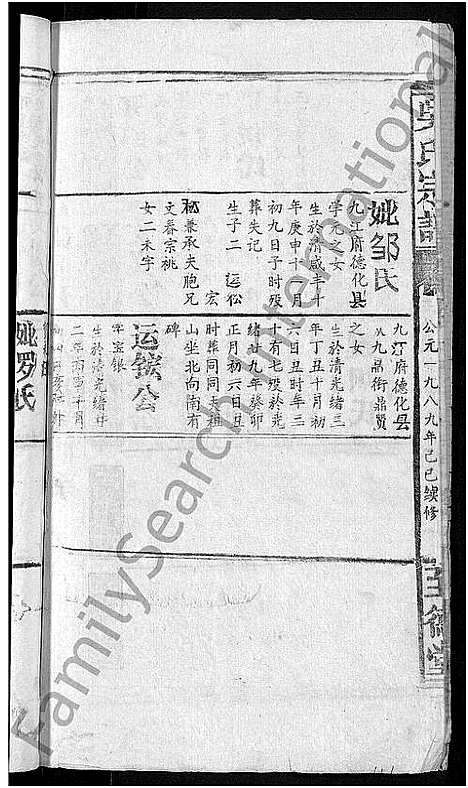 吴氏宗谱
公元一九八九年己巳续修
妣邹氏
九江府德化县
学元之女
生於清咸丰十
年庚申十月
初九日子时殁
葬失记
生子二 运松
宏
松兼承夫胞兄
文春宗桃
女二未字
九江府德化县
九品衔鼎贤
之女
生於清光绪三
年丁丑十月初
六日丑时年三
十有七殁於光
绪廿九年癸卯
正月初六日丑
时葬同夫祖
山坐北向南有
碑
运铰公
字宝银
生於清光绪廿
二年丙申十月
妣罗氏
FamilySearch International